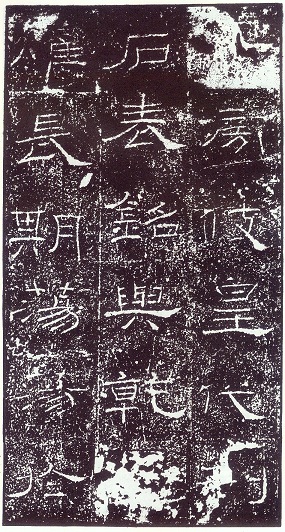 旁伎皇代刊
石表銘與乾
燿長期蕩蕩於